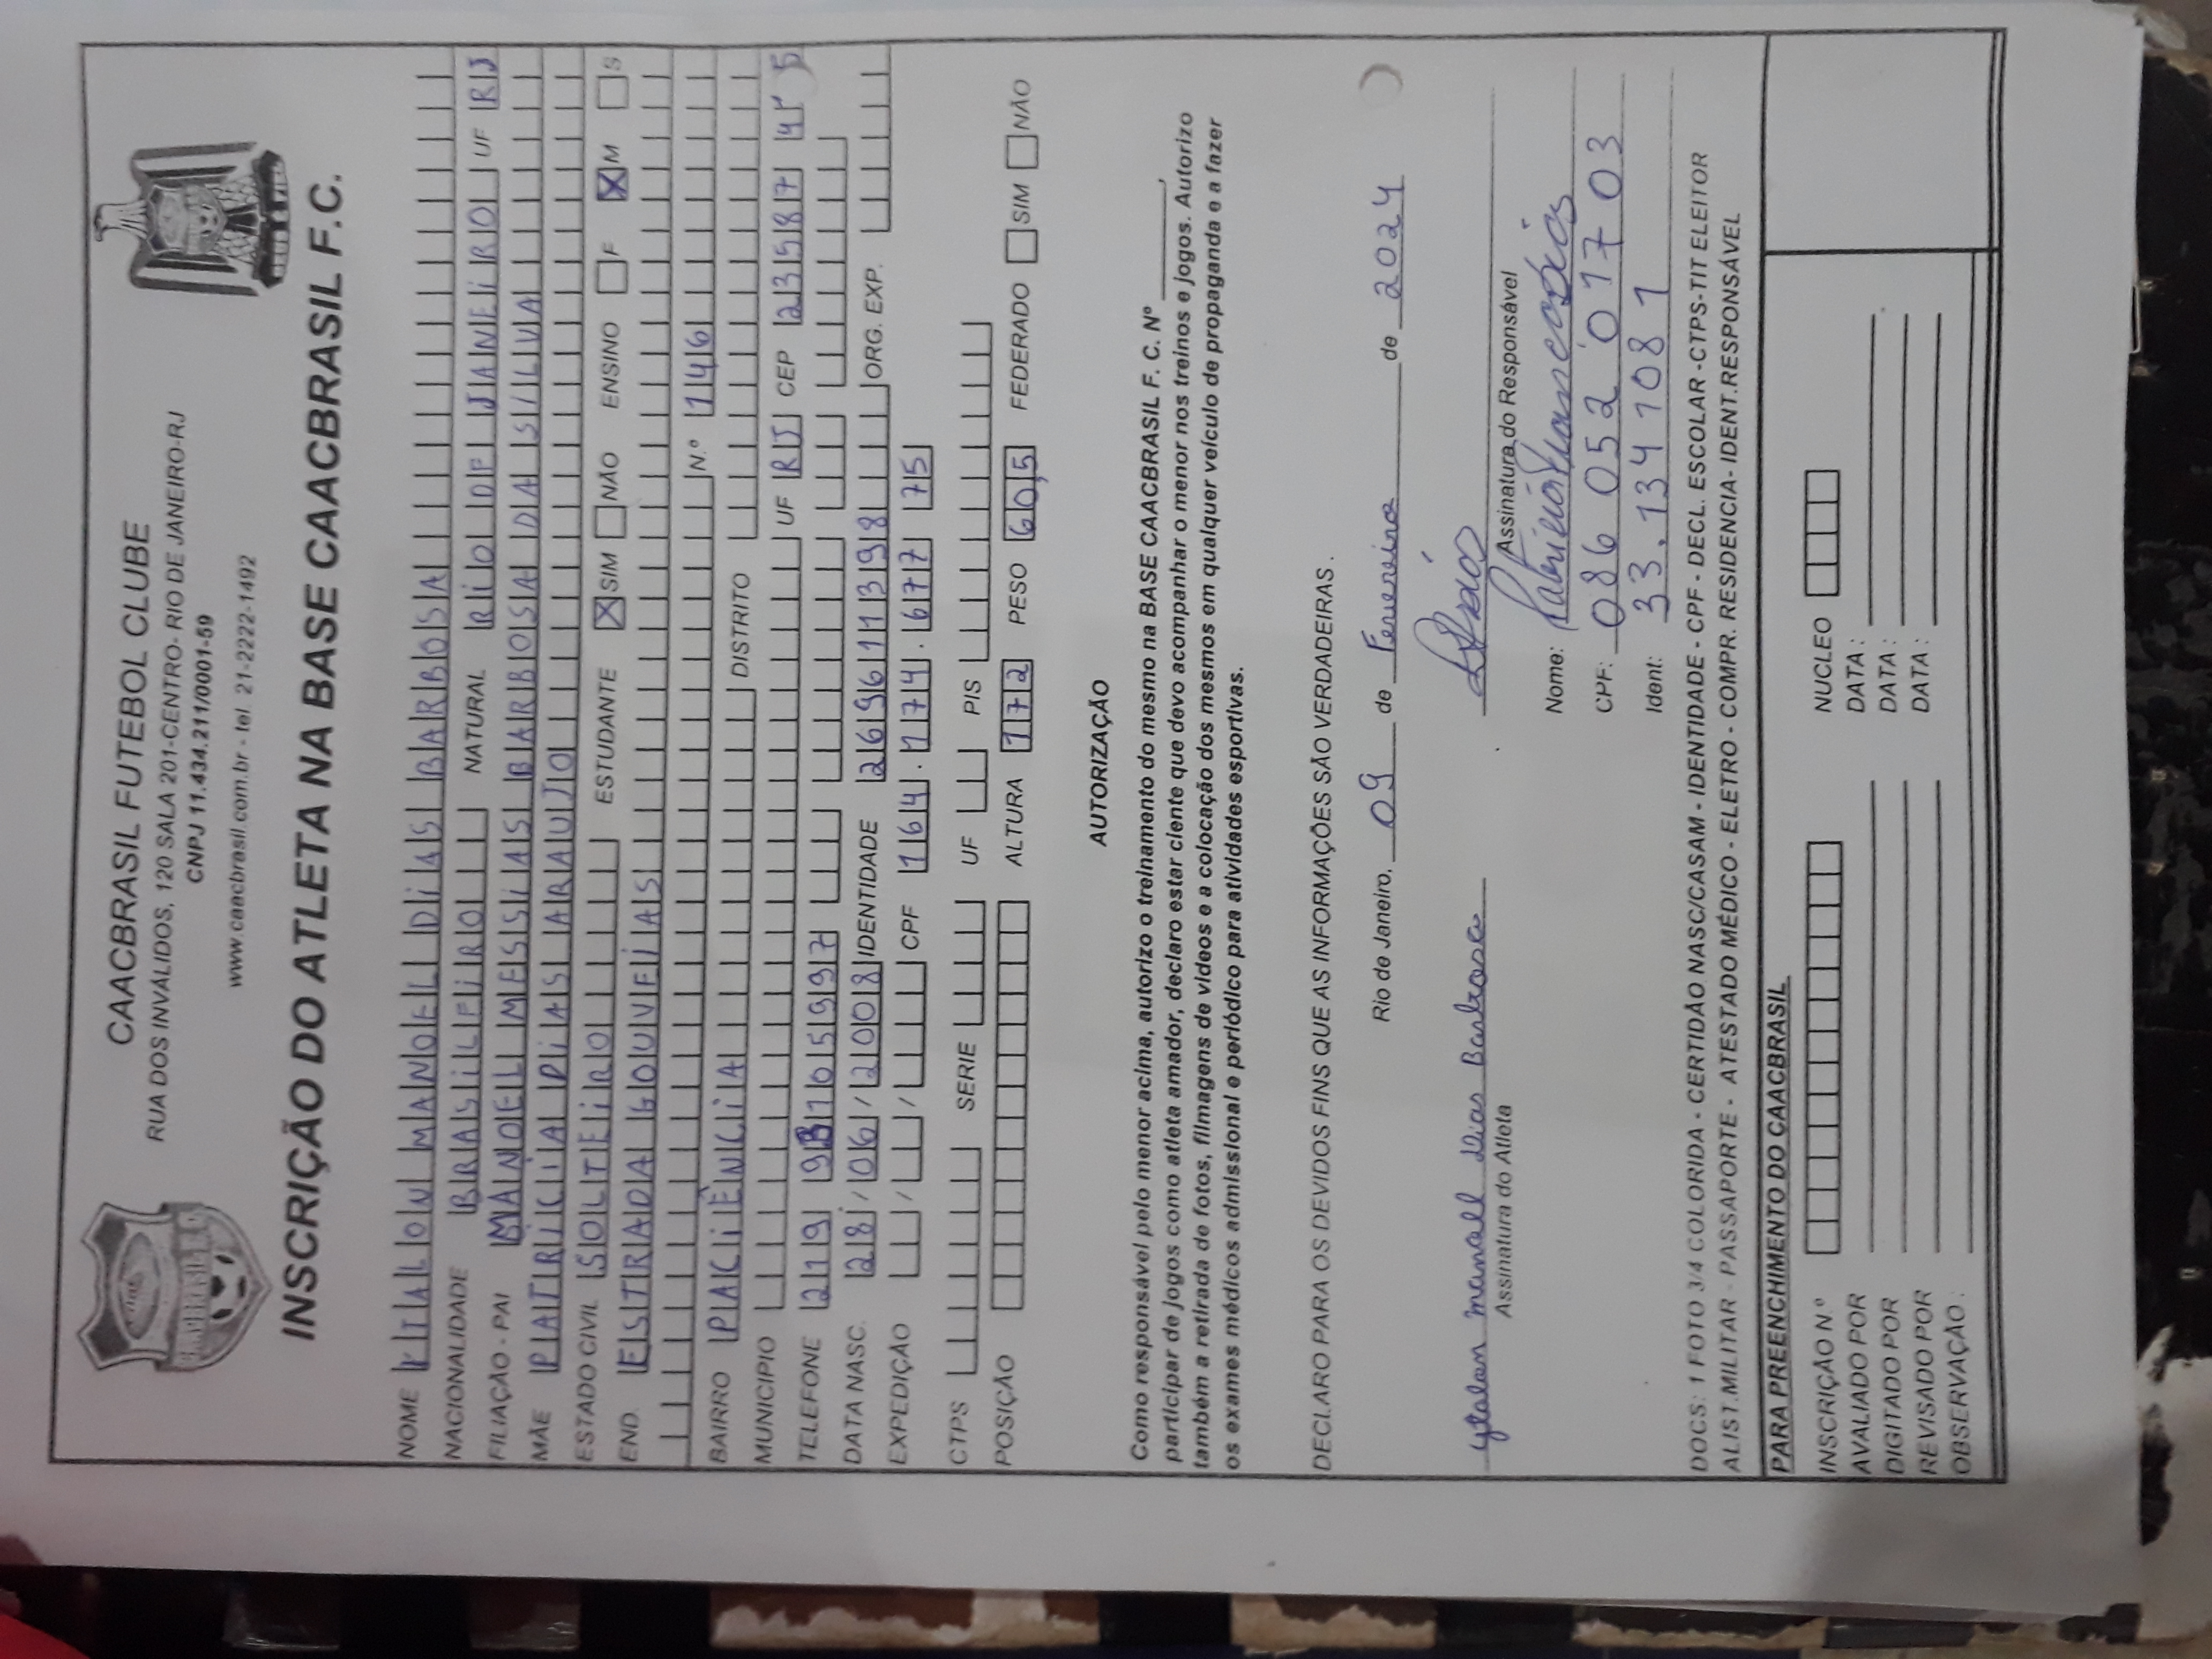 CAACBRASIL FUTEBOL CLUBE
RUA DOS INVÁLIDOS, 120 SALA 201-CENTRO- RIO DE JANEIRO-RJ
CNPJ 11.434.211/0001-59
www.caacbrasil.com.br - tel 21-2222-1492
INSCRIÇÃO DO ATLETA NA BASE CAACBRASIL F.C.
NOME YTALON MANOEL DIAS BARBOSA
NACIONALIDADE BRASILEIRO NATURAL RIO DE JANEIRO UF RJ
FILIAÇÃO - PAI MANOEL MESSIAS BARBOSA DA SILVA
MÃE PATRICIA DIAS ARAUJO
ESTADO CIVIL SOLTEIRO ESTUDANTE X SIM NÃO ENSINO F X M S
END. ESTRADA GOUVEIAS Nº 146
BAIRRO PACIÊNCIA DISTRITO
MUNICIPIO UF RJ CEP 23587 45
TELEFONE 219 97105997
DATA NASC. 28/06/2008 IDENTIDADE 269611398 ORG. EXP.
EXPEDIÇÃO / / CPF 164.174.677 75
CTPS SERIE UF PIS
POSIÇÃO ALTURA 172 PESO 60,5 FEDERADO SIM NÃO
AUTORIZAÇÃO
Como responsável pelo menor acima, autorizo o treinamento do mesmo na BASE CAACBRASIL F. C. Nº ________,
participar de jogos como atleta amador, declaro estar ciente que devo acompanhar o menor nos treinos e jogos. Autorizo
também a retirada de fotos, filmagens de vídeos e a colocação dos mesmos em qualquer veículo de propaganda e a fazer
os exames médicos admissional e periódico para atividades esportivas.
DECLARO PARA OS DEVIDOS FINS QUE AS INFORMAÇÕES SÃO VERDADEIRAS.
Rio de Janeiro, 09 de Fevereiro de 2024
ytalon manoel Dias Barbosa
Assinatura do Atleta
Assinatura do Responsável
Nome:
CPF: 086 052 017 03
Ident: 33.134 108 1
DOCS: 1 FOTO 3/4 COLORIDA - CERTIDÃO NASC/CASAM - IDENTIDADE - CPF - DECL. ESCOLAR -CTPS-TIT ELEITOR
ALIST.MILITAR - PASSAPORTE - ATESTADO MÉDICO - ELETRO - COMPR. RESIDENCIA- IDENT.RESPONSÁVEL
PARA PREENCHIMENTO DO CAACBRASIL
INSCRIÇÃO N.º NUCLEO
AVALIADO POR DATA:
DIGITADO POR DATA:
REVISADO POR DATA:
OBSERVAÇÃO: